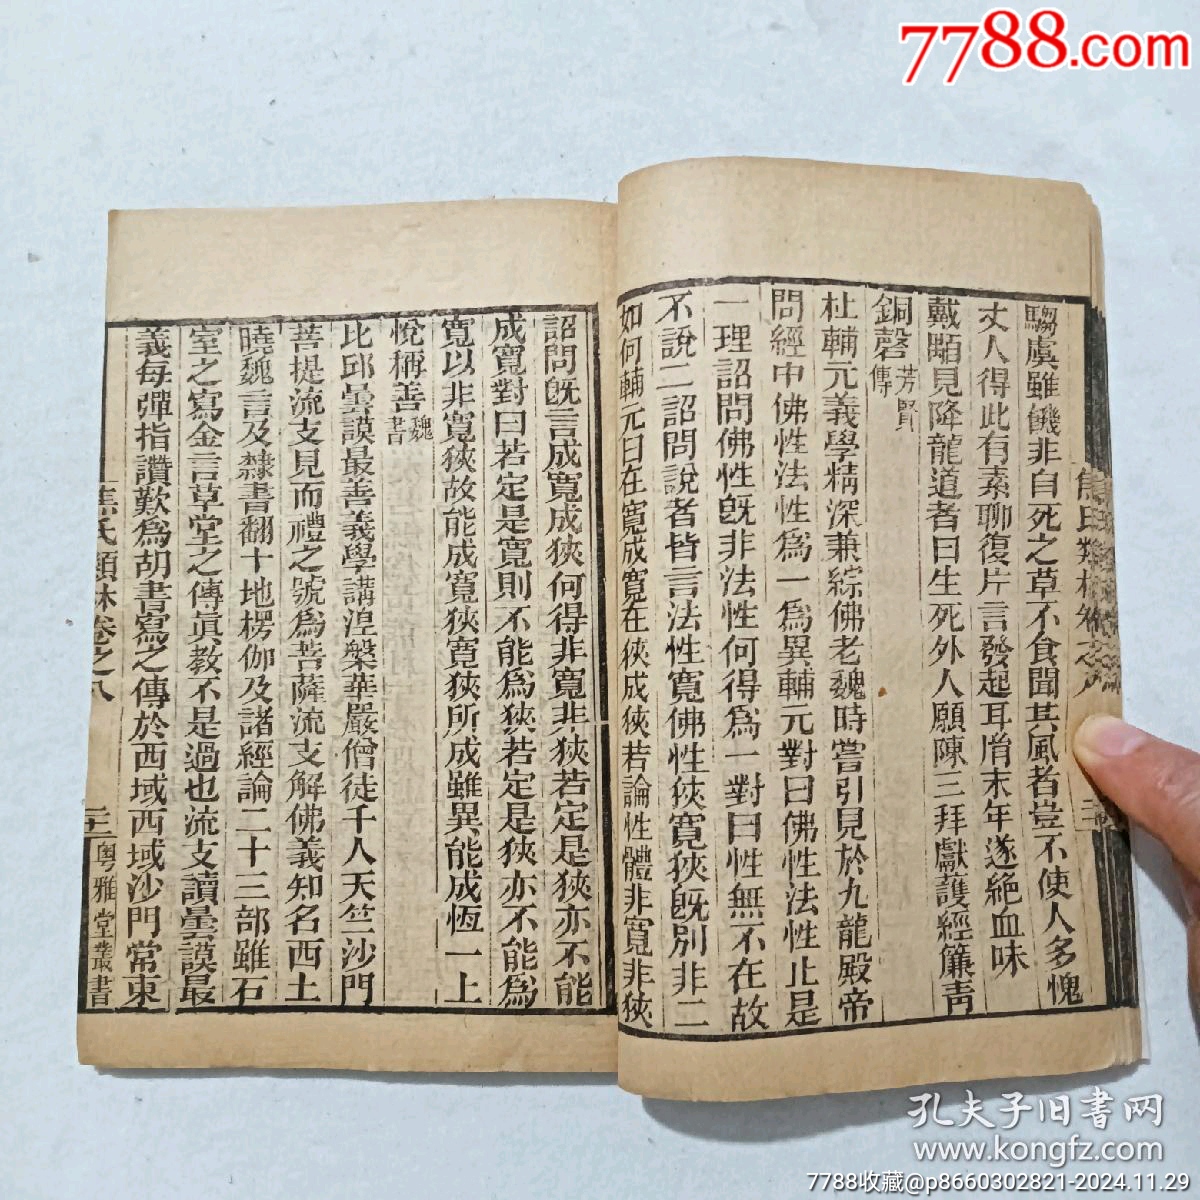 7788.com
騶虞雖饑非自死之草不食聞其風者豈不使人多愧
丈人得此有素聊復片言發起耳䏿末年遂絕血味
戴顒見降龍道者曰生死外人願陳三拜獻護經簾青
銅磬芳賢傳
杜輔元義學精深兼綜佛老魏時嘗引見於九龍殿帝
問經中佛性法性為一為異輔元對曰佛性法性止是
一理詔問佛性既非法性何得為一對曰性無不在故
不說二詔問說者皆言法性寬佛性狹寬狹既別非二
如何輔元曰在寬成寬在狹成狹若論性體非寬非狹
詔問既言成寬成狹何得非寬非狹若定是狹亦不能
成寬對曰若定是寬則不能為狹若定是狹亦不能為
寬以非寬狹故能成寬狹寬狹所成雖異能成恆一上
悅稱善魏書
比邱曇謨最善義學講湼槃華嚴僧徒千人天竺沙門
菩提流支見而禮之號為菩薩流支解佛義知名西土
曉魏言及隸書翻十地楞伽及諸經論二十三部雖石
室之寫金言草堂之傳眞教不是過也流支讀曇謨最
義每彈指讚歎為胡書寫之傳於西域西域沙門常東
焦氏類林卷之八
粤雅堂叢書
孔夫子旧书网
www.kongfz.com
7788收藏@p8660302821-2024.11.29